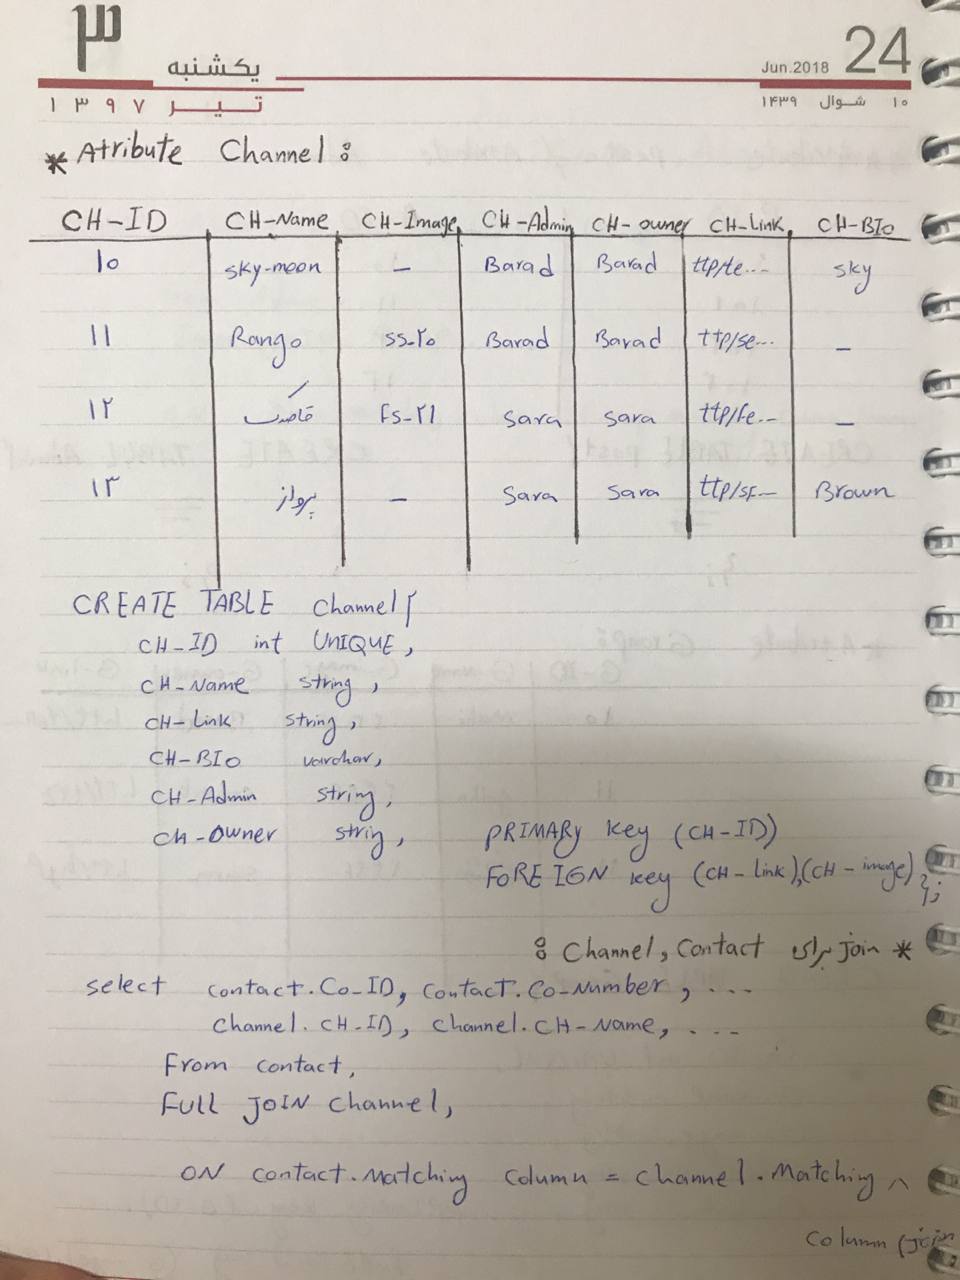 ۳ یکشنبه Jun.2018 24
تیر ۱۳۹۷ ۱۰ شوال ۱۴۳۹
* Atribute Channel:
CH-ID CH-Name CH-Image CH-Admin CH-owner CH-Link CH-BIO
۱۰ sky-moon - Barad Barad ttp/te... sky
۱۱ Rango ss-۲۰ Barad Barad ttp/se... -
۱۲ قاصدک Fs-۲۱ Sara Sara ttp/Fe... -
۱۳ پرواز - Sara Sara ttp/sF... Brown
CREATE TABLE Channel{
CH-ID int UNIQUE,
CH-Name string,
CH-Link string,
CH-BIO varchar,
CH-Admin string,
CH-Owner strig, PRIMARY key (CH-ID)
FOREIGN key (CH-link),(CH-image)
};
* join برای Channel, Contact :
select contact.Co-ID, Contact.Co-Number, ...
Channel.CH-ID, Channel.CH-Name, ...
From contact,
FULL JOIN Channel,
ON contact.Matching Column = Channel.Matching
Column (join